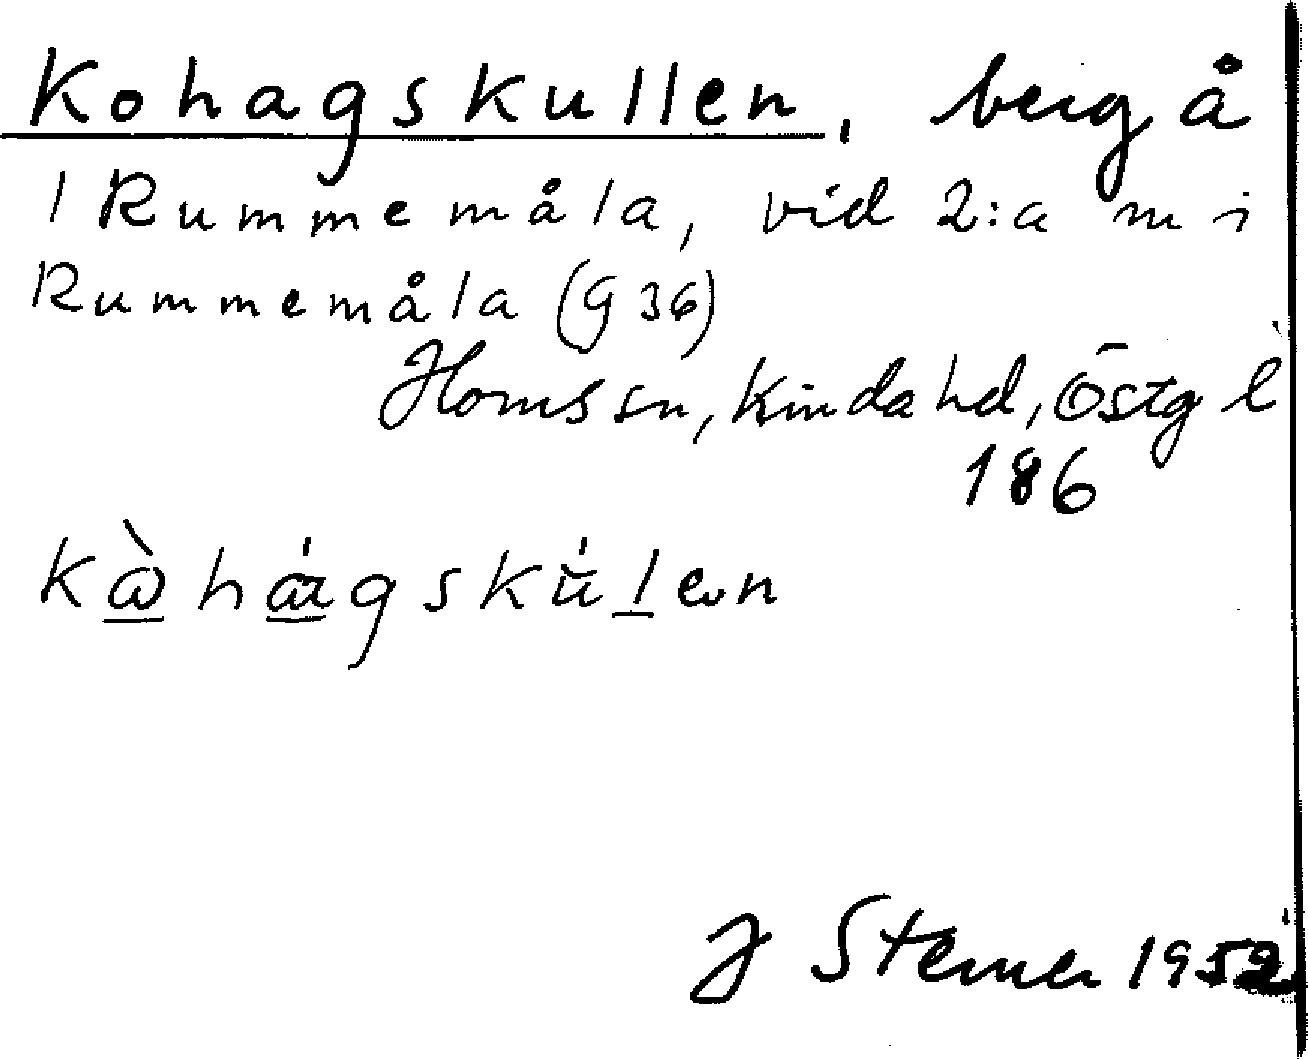 Kohagskullen, berg å
1 Rummemåla, vid 2:a m i
Rummemåla (G 36)
Horns sn, Kinda hd, Östg l
186
kὼhágskúlen
J Sterner 1952